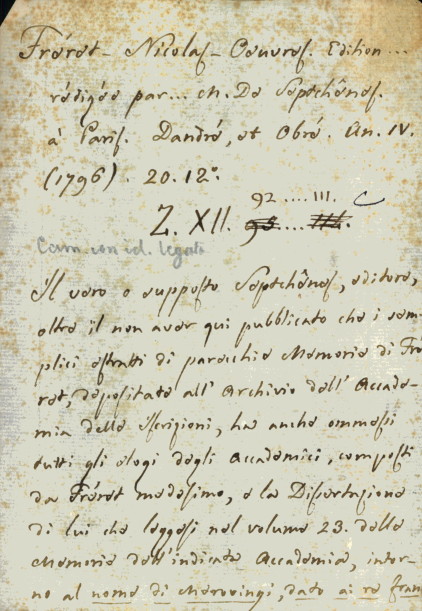 Fréret - Nicolas - Oeuvres. Edition...
rédigée par... M. De Septchênes.
à Paris. Dandré, et Obré. An. IV.
(1796). 20. 12°.
92 .... III.
Z. XII. 93 ... IIII.
Cam. con id. legato
Il vero o supposto Septchênes, editore,
oltre il non aver qui pubblicato che i sem-
plici estratti di parecchie Memorie di Fré-
ret, depositate all' Archivio dell' Accade-
mia delle Iscrizioni, ha anche ommessi
tutti gli elogi degli Accademici, composti
da Fréret medesimo, e la Dissertazione
di lui che leggesi nel volume 23. delle
Memorie dell' indicata Accademia, intor-
no al nome di Merovingi, dato ai re fran